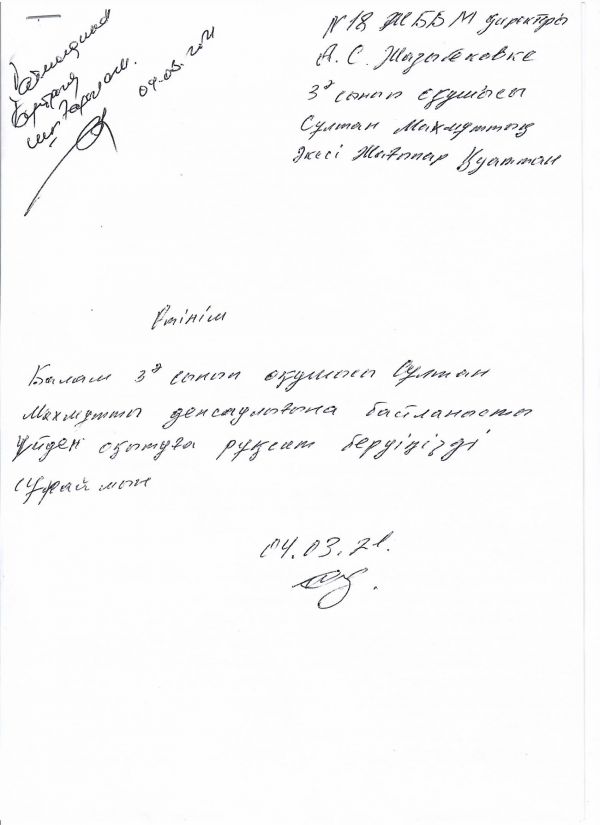 09.03.2021
N 18 ЖББМ директры
А. С. Жазыбековке
3ә сынып оқушысы
Султан Махмуттың
Әкесі Жағыпар Қуаттан
Өтініш
Балам 3ә сынып оқушысы Султан
Махмутты денсаулығына байланысты
үйден оқытуға руқсат беруіңізді
сұраймын
04.03.21.